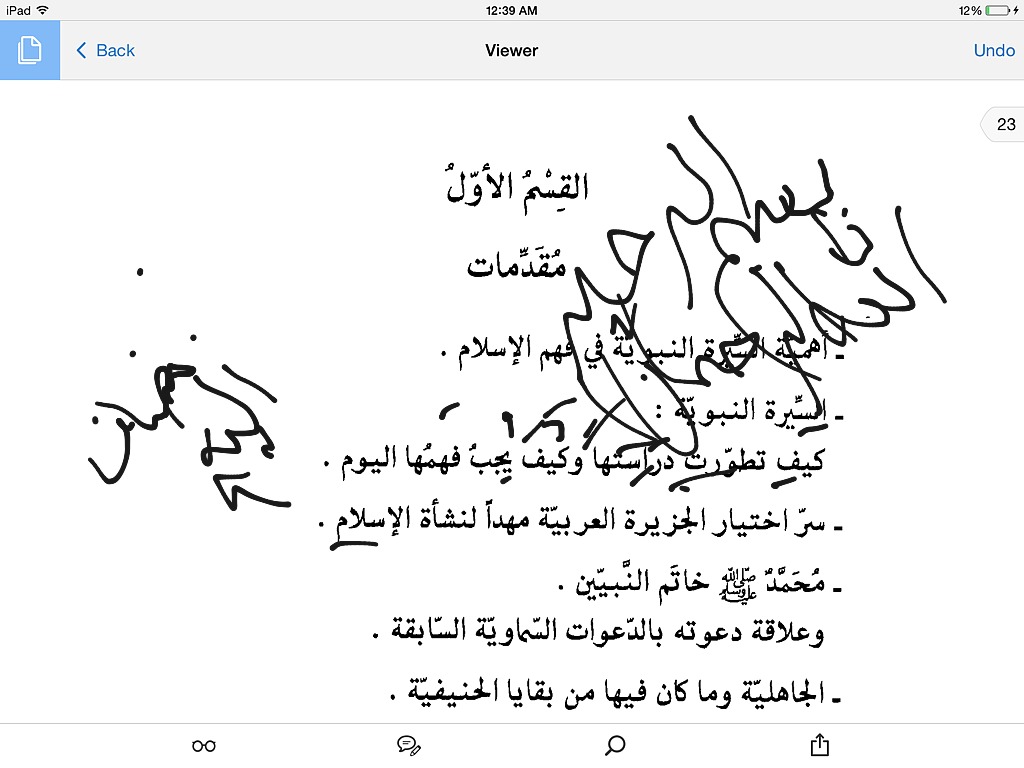 iPad 12:39 AM 12%
Back Viewer Undo
23
القِسْمُ الأوّلُ
مُقَدِّمات
ـ أهميّة السِّيرة النبويّة في فهم الإسلام .
ـ السِّيرة النبويّة :
كيف تطوّرت دراستها وكيف يجبُ فهمُها اليوم .
ـ سرّ اختيار الجزيرة العربيّة مهداً لنشأة الإسلام .
ـ مُحَمَّدٌ ﷺ خاتَم النَّبيّين .
وعلاقة دعوته بالدّعوات السّماويّة السّابقة .
ـ الجاهليّة وما كان فيها من بقايا الحنيفيّة .